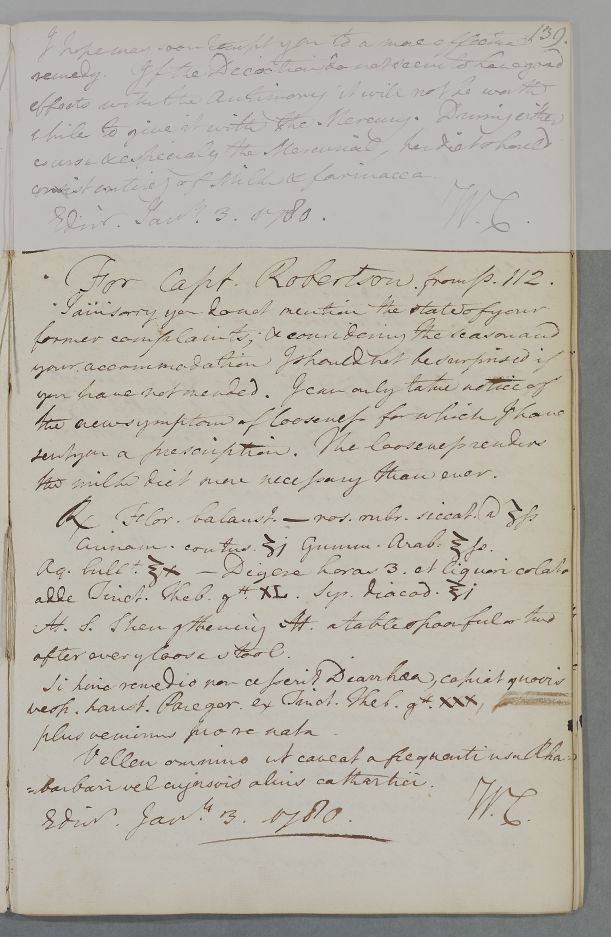 139.
I hope may soon tempt you to a more effectual
remedy. If the Decoction do not seem to have good
effects with the Antimony it will not be worth
while to give it with the Mercury. During either
course & especialy the Mercurial, her diet should
consist entirely of Milk & farinacea.
Edinr. Janry. 3. 1780. W.C.
For Capt. Robertson. from p. 112.
I am sorry you do not mention the state of your
former complaints; & considering the season and
your accommodation I should not be surprised if
you have not mended. I can only take notice of
the new symptom of looseness for which I have
sent you a prescription. The looseness renders
the milk diet more necessary than ever.
℞ Flor. balaust. — ros. rubr. siccat. a ℥ſs
Cinnam. contus. ʒj Gumm. Arab. ℥ſs.
Aq. bullt. ℥x — Digere horas 3. et liquori colato
adde Tinct. Theb. gtt XL. Syr. diacod. ℥j
M. S. Strengthening M. a tablespoonful or two
after every loose stool.
Si hinc remedio non cesserit Diarrhœa, capiat quovis
vesp. haust. Paregor. ex Tinct. Theb. gtt. XXX,
plus veminus pro re nata
Vellem omnino ut caveat a frequenti usu Rha-
=barbari vel cujusvis alius cathartici.
Edinr. Janry 3. 1780. W.C.